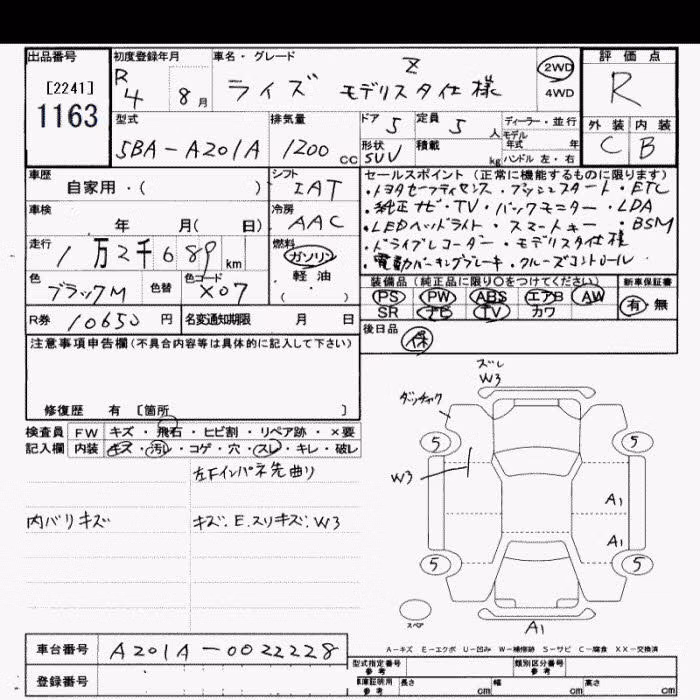 出品番号
[2241]
1163
初度登録年月
R 4 8月
車名・グレード
ライズ Z モデリスタ仕様
2WD
4WD
評価点
R
外装 内装
C B
型式
5BA-A201A
排気量
1200 CC
ドア 5
定員 5 人
形状 SUV
積載 kg
ディーラー・並行
モデル
年式 年
ハンドル 左・右
車歴
自家用・( )
シフト
IAT
車検
年 月( 日)
冷房
AAC
走行
1万2千689 km
燃料
ガソリン
軽油
( )
色
ブラックM
色替
色コード
X07
R券 10650 円
名変通知期限 月 日
セールスポイント (正常に機能するものに限ります)
・トヨタセーフティセンス・プッシュスタート・ETC
・純正ナビ・TV・バックモニター・LDA
・LEDヘッドライト・スマートキー・BSM
・ドライブレコーダー・モデリスタ仕様
・電動パーキングブレーキ・クルーズコントロール
装備品 (純正品に限り○をつけてください)
PS PW ABS エアB AW
SR ナビ TV カワ
新車保証書
有・無
後日品
保
注意事項申告欄(不具合内容等は具体的に記入して下さい)
修復歴 有 [箇所 ]
検査員
記入欄
FW キズ・飛石・ヒビ割・リペア跡・×要
内装 キズ・汚レ・コゲ・穴・スレ・キレ・破レ
左Fインパネ先曲り
内バリキズ
キズ.E.スリキズ.W3
ズレ
W3
ダッチャク
5
5
W3
A1
A1
5
5
スペア
A1
A-キズ E-エクボ U-凹み W-補修跡 S-サビ C-腐食 XX-交換済
車台番号
A201A-0022228
登録番号
型式指定番号
参考
類別区分番号
参考
車庫証明用
参考
長さ cm 幅 cm 高さ cm